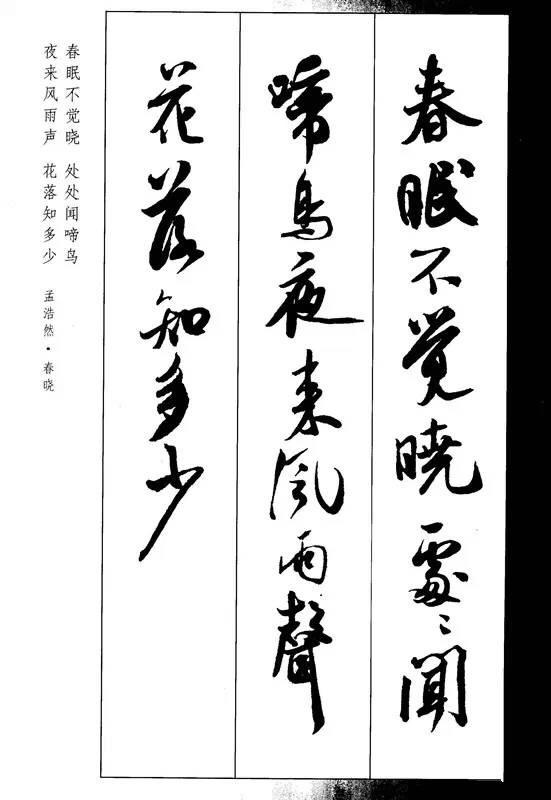 春眠不觉晓處〻闻
啼鸟夜来风雨聲
花落知多少
春眠不觉晓 处处闻啼鸟
夜来风雨声 花落知多少
孟浩然·春晓